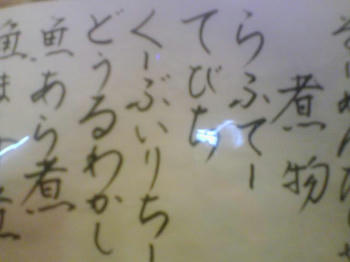 煮物
らふてー
てびち
くーぶいりちー
どぅるわかし
魚あら煮